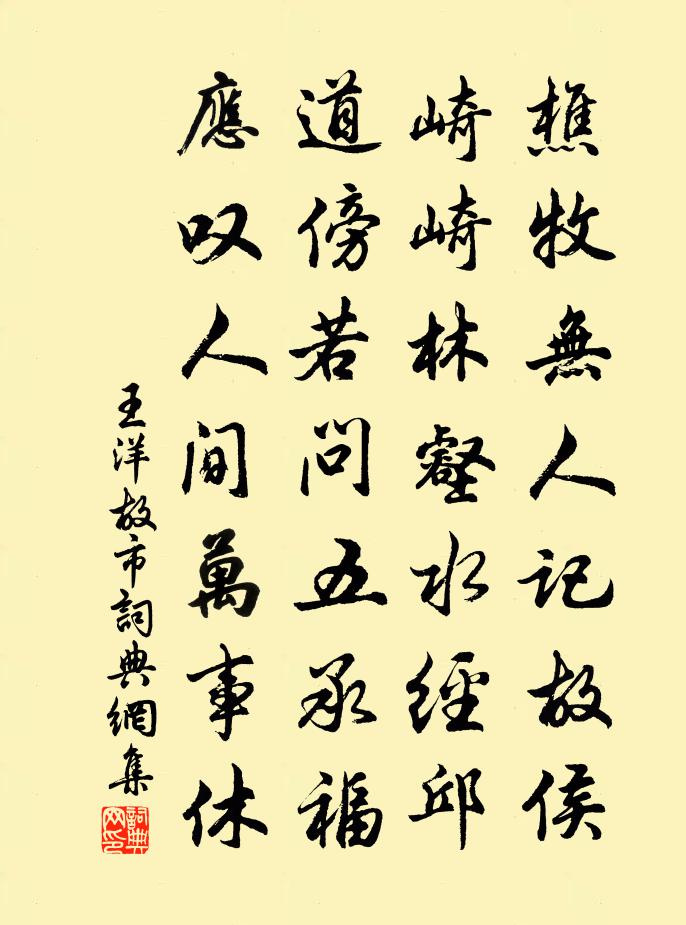 樵牧無人記故侯
崎崎林壑水經邱
道傍若問五承福
應叹人间萬事休
王洋故市詞典網集
詞典网印